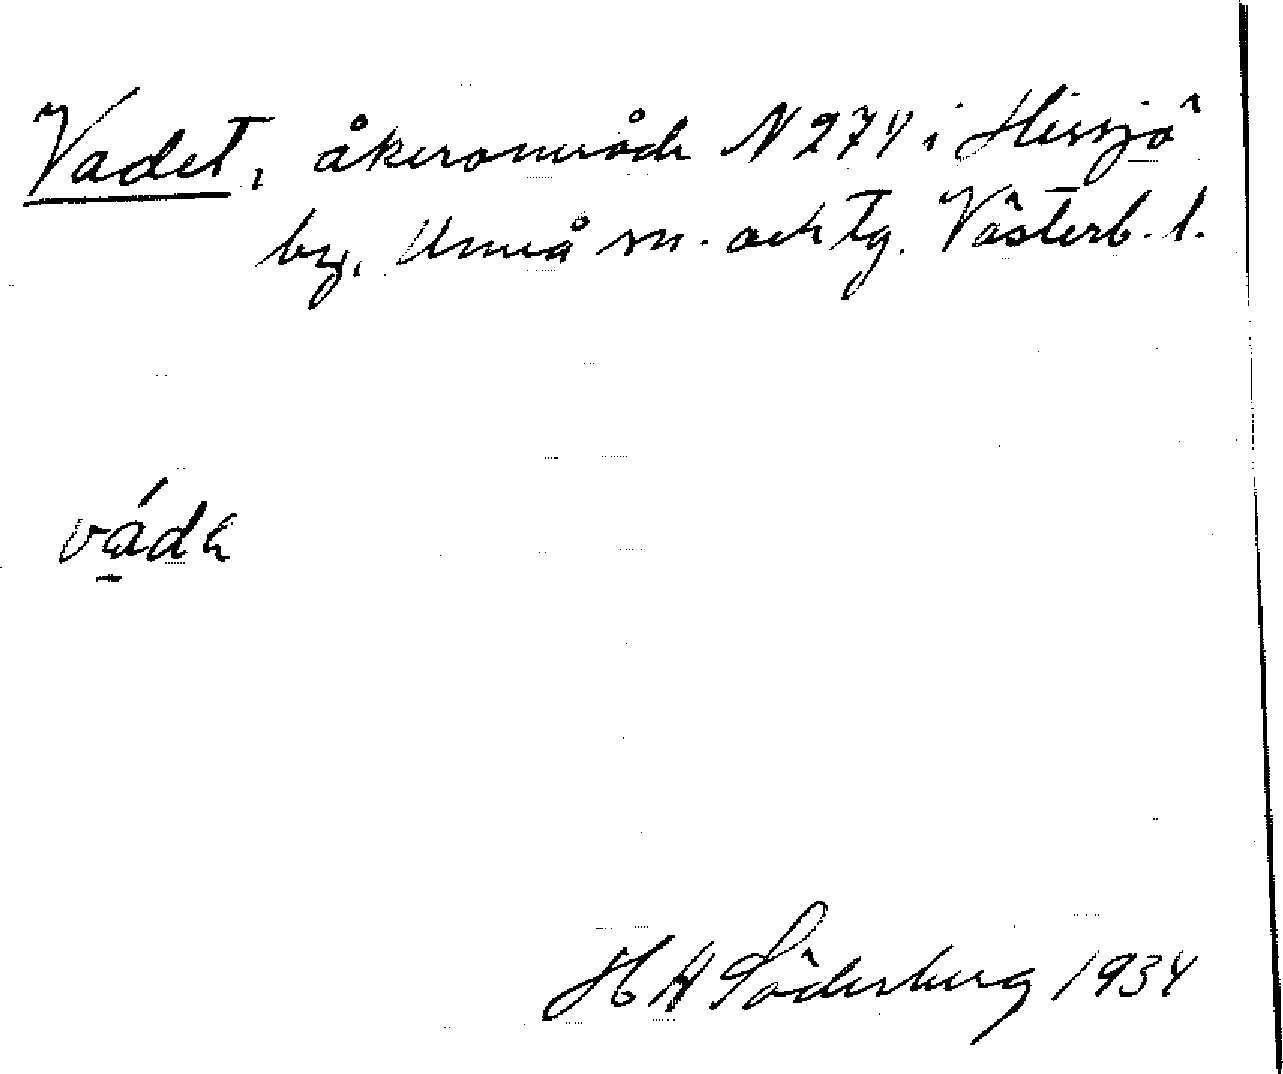 Vadet, åkerområde N 274 i Hissjö
by, Umeå sn. och tg. Västerb. l.
váda
H A Söderberg 1934